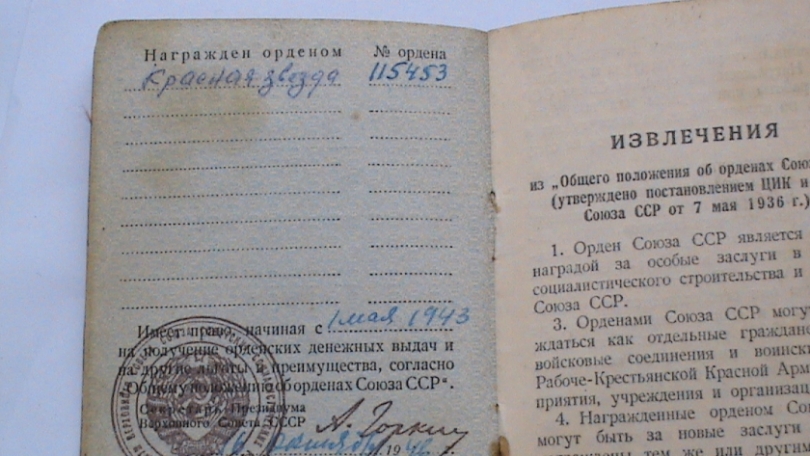 Награжден орденом № ордена
Красная звезда 115453
Имеет право, начиная с 1 мая 1943
на получение орденских денежных выдач и
на другие льготы и преимущества, согласно
„Общему положению об орденах Союза ССР“.
Секретарь Президиума
Верховного Совета СССР А. Горкин
194
ИЗВЛЕЧЕНИЯ
из „Общего положения об орденах Союз
(утверждено постановлением ЦИК и
Союза ССР от 7 мая 1936 г.)
1. Орден Союза ССР является
наградой за особые заслуги в
социалистического строительства и
Союза ССР.
3. Орденами Союза ССР могут
ждаться как отдельные граждан
войсковые соединения и воински
Рабоче-Крестьянской Красной Арм
приятия, учреждения и организаци
4. Награжденные орденом Сою
могут быть за новые заслуги
тем же или другим